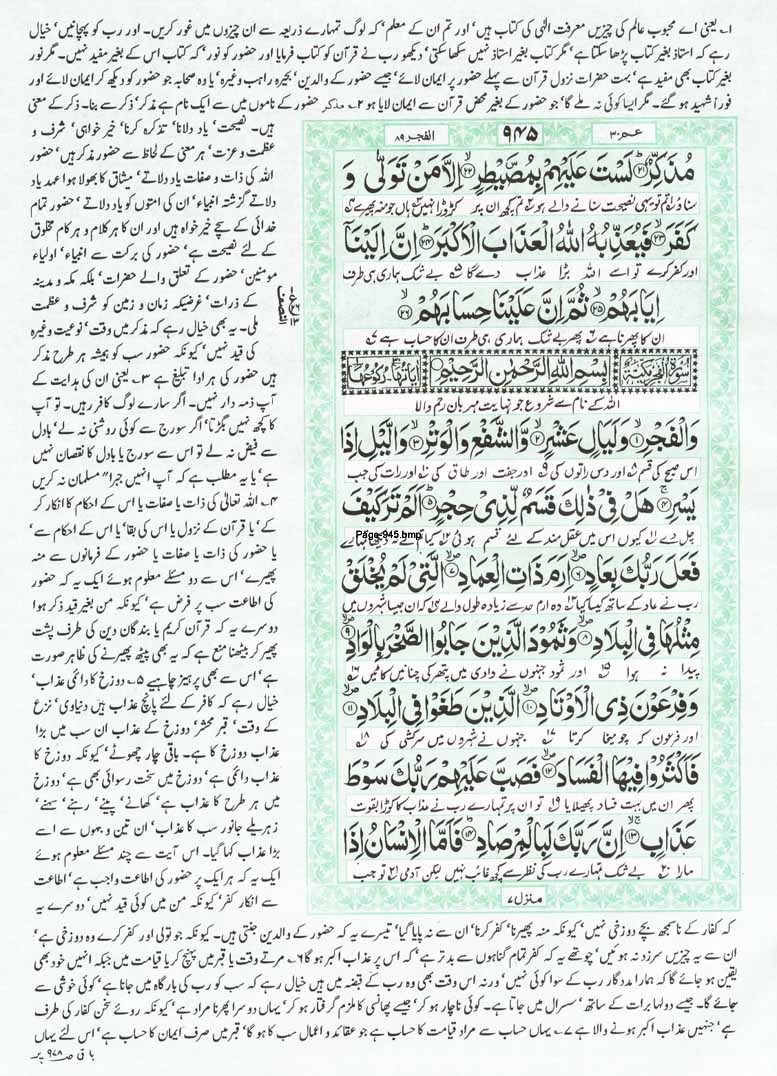 ۱۔ یعنی اے محبوب عالم کی چیزیں معرفت الٰہی کی کتاب ہیں' اور تم ان کے معلم' کہ لوگ تمہارے ذریعہ سے ان چیزوں میں غور کریں۔ اور رب کو پہچانیں' خیال
رہے کہ استاذ بغیر کتاب پڑھا سکتا ہے' مگر کتاب بغیر استاذ نہیں سکھا سکتی' دیکھو رب نے قرآن کو کتاب فرمایا اور حضور کو نور' کہ کتاب اس کے بغیر مفید نہیں۔ مگر نور
بغیر کتاب بھی مفید ہے' بہت حضرات نزول قرآن سے پہلے حضور پر ایمان لائے' جیسے حضور کے والدین' بحیرہ راہب وغیرہ' یا وہ صحابہ جو حضور کو دیکھ کر ایمان لائے اور
فوراً شہید ہو گئے۔ مگر ایسا کوئی نہ ملے گا' جو حضور کے بغیر محض قرآن سے ایمان لایا ہو ۲۔ مذکر حضور کے ناموں میں سے ایک نام ہے مذکر' ذکر سے بنا۔ ذکر کے معنی
ہیں۔ نصیحت' یاد دلانا' تذکرہ کرنا' خیر خواہی' شرف و
عظمت و عزت' ہر معنی کے لحاظ سے حضور مذکر ہیں' حضور
اللہ کی ذات و صفات یاد دلاتے' میثاق کا بھولا ہوا عہد یاد
دلاتے گزشتہ انبیاء' ان کی امتوں کو یاد دلاتے' حضور تمام
خدائی کے سچے خیر خواہ ہیں اور ان کا ہر کلام و ہر کام مخلوق
کے لئے نصیحت ہے' حضور کی برکت سے انبیاء' اولیاء
مومنین' حضور کے تعلق والے حضرات' بلکہ مکہ و مدینہ
کے ذرات' غرضیکہ زمان و زمین کو شرف و عظمت
ملی۔ یہ بھی خیال رہے کہ مذکر میں وقت' نوعیت وغیرہ
کی قید نہیں' کیونکہ حضور سب کو ہمیشہ ہر طرح مذکر
ہیں حضور کی ہر ادا تبلیغ ہے ۳۔ یعنی ان کی ہدایت کے
آپ ذمہ دار نہیں۔ اگر سارے لوگ کافر رہیں۔ تو آپ
کا کچھ نہیں بگڑتا' اگر سورج سے کوئی روشنی نہ لے' بادل
سے فیض نہ لے تو اس سے سورج یا بادل کا نقصان نہیں
ہے' یا یہ مطلب ہے کہ آپ انہیں جبراً مسلمان نہ کریں
۴۔ اللہ تعالیٰ کی ذات یا صفات یا اس کے احکام کا انکار کر
کے' یا قرآن کے نزول یا اس کی بقا' یا اس کے احکام سے'
یا حضور کی ذات یا صفات یا حضور کے فرمانوں سے منہ
پھیرے' اس سے دو مسئلے معلوم ہوئے ایک یہ کہ حضور
کی اطاعت سب پر فرض ہے' کیونکہ من بغیر قید ذکر ہوا
دوسرے یہ کہ قرآن کریم یا بندگان دین کی طرف پشت
پھیر کر بیٹھنا منع ہے کہ یہ بھی پیٹھ پھیرنے کی ظاہر صورت
ہے' اس سے بھی پرہیز چاہیے ۵۔ دوزخ کا دائمی عذاب'
خیال رہے کہ کافر کے لئے پانچ عذاب ہیں دنیاوی' نزع
کے وقت' قبر' محشر' دوزخ کے عذاب ان سب میں بڑا
عذاب دوزخ کا ہے۔ باقی چار چھوٹے' کیونکہ دوزخ کا
عذاب دائمی ہے' دوزخ میں سخت رسوائی بھی ہے' دوزخ
میں ہر طرح کا عذاب ہے' کھانے' پینے' رہنے' سہنے'
زہریلے جانور سب کا عذاب' ان تین وجہوں سے اسے
بڑا عذاب کہا گیا۔ اس آیت سے چند مسئلے معلوم ہوئے
ایک یہ کہ ہر ایک پر حضور کی اطاعت واجب ہے' اطاعت
سے انکار کفر' کیونکہ من میں کوئی قید نہیں' دوسرے یہ
عم ۳۰
۹۴۵
الفجر ۸۹
مُذَكِّرٌ ﴿۲۱﴾ لَسْتَ عَلَيْهِمْ بِمُصَيْطِرٍ ﴿۲۲﴾ اِلَّا مَنْ تَوَلّٰى وَ
سناؤ تم تو یہی نصیحت سنانے والے ہو تم کچھ ان پر کڑوڑا نہیں ہاں جو منہ پھیرے
كَفَرَ ﴿۲۳﴾ فَيُعَذِّبُهُ اللّٰهُ الْعَذَابَ الْاَكْبَرَ ﴿۲۴﴾ اِنَّ اِلَيْنَاۤ
اور کفر کرے تو اسے اللہ بڑا عذاب دے گا بے شک ہماری ہی طرف
اِيَابَهُمْ ﴿۲۵﴾ ثُمَّ اِنَّ عَلَيْنَا حِسَابَهُمْ ﴿۲۶﴾
ان کا پھرنا ہے پھر بے شک ہماری ہی طرف ان کا حساب ہے
سُوْرَةُ الْفَجْرِ مَكِّيَّةٌ
بِسْمِ اللّٰهِ الرَّحْمٰنِ الرَّحِيْمِ
اٰيَاتُهَا رُكُوْعُهَا
اللہ کے نام سے شروع جو نہایت مہربان رحم والا
وَالْفَجْرِ ﴿۱﴾ وَلَيَالٍ عَشْرٍ ﴿۲﴾ وَّالشَّفْعِ وَالْوَتْرِ ﴿۳﴾ وَالَّيْلِ اِذَا
اس صبح کی قسم اور دس راتوں کی اور جفت اور طاق کی اور رات کی جب
يَسْرِ ﴿۴﴾ هَلْ فِيْ ذٰلِكَ قَسَمٌ لِّذِيْ حِجْرٍ ﴿۵﴾ اَلَمْ تَرَ كَيْفَ
چل دے کیوں اس میں عقل مند کے لئے قسم ہوئی کیا تم نے نہ دیکھا تمہارے
Page-945.bmp
فَعَلَ رَبُّكَ بِعَادٍ ﴿۶﴾ اِرَمَ ذَاتِ الْعِمَادِ ﴿۷﴾ الَّتِيْ لَمْ يُخْلَقْ
رب نے عاد کے ساتھ کیسا کیا وہ ارم حد سے زیادہ طول والے کہ ان جیسا شہروں میں
مِثْلُهَا فِي الْبِلَادِ ﴿۸﴾ وَثَمُوْدَ الَّذِيْنَ جَابُوا الصَّخْرَ بِالْوَادِ ﴿۹﴾
پیدا نہ ہوا اور ثمود جنہوں نے وادی میں پتھر کی چٹانیں کاٹیں
وَفِرْعَوْنَ ذِي الْاَوْتَادِ ﴿۱۰﴾ الَّذِيْنَ طَغَوْا فِي الْبِلَادِ ﴿۱۱﴾
اور فرعون کہ چومیخا کرتا جنہوں نے شہروں میں سرکشی کی
فَاَكْثَرُوْا فِيْهَا الْفَسَادَ ﴿۱۲﴾ فَصَبَّ عَلَيْهِمْ رَبُّكَ سَوْطَ
پھر ان میں بہت فساد پھیلایا تو ان پر تمہارے رب نے عذاب کا کوڑا بقوت
عَذَابٍ ﴿۱۳﴾ اِنَّ رَبَّكَ لَبِالْمِرْصَادِ ﴿۱۴﴾ فَاَمَّا الْاِنْسَانُ اِذَا
مارا بے شک تمہارے رب کی نظر سے کچھ غائب نہیں لیکن آدمی تو جب
منزل ۷
کہ کفار کے ناسمجھ بچے دوزخی نہیں' کیونکہ منہ پھیرنا' کفر کرنا' ان سے نہ پایا گیا' تیسرے یہ کہ حضور کے والدین جنتی ہیں۔ کیونکہ جو تولی اور کفر کرے وہ دوزخی ہے'
ان سے یہ چیزیں سرزد نہ ہوئیں' چوتھے یہ کہ کفر تمام گناہوں سے بدتر ہے' کہ اس پر عذاب اکبر ہو گا ۶۔ مرتے وقت یا قبر میں پہنچ کر یا قیامت میں جبکہ انہیں خود بھی
یقین ہو جائے گا کہ ہمارا مددگار رب کے سوا کوئی نہیں' ورنہ اس وقت بھی وہ رب کے قبضہ میں ہیں خیال رہے کہ سب کو رب کی بارگاہ میں جانا ہے' کوئی خوشی سے
جائے گا۔ جیسے دولہا برات کے ساتھ' سسرال میں جاتا ہے۔ کوئی ناچار ہو کر' جیسے پھانسی کا ملزم گرفتار ہو کر' یہاں دوسرا پھرنا مراد ہے' کیونکہ روئے سخن کفار کی طرف
ہے' جنہیں عذاب اکبر ہونے والا ہے ۷۔ یہاں حساب سے مراد قیامت کا حساب ہے جو عقائد و اعمال سب کا ہو گا' قبر میں صرف ایمان کا حساب ہے' اس لئے یہاں
باقی ص ۹۷۸ پر